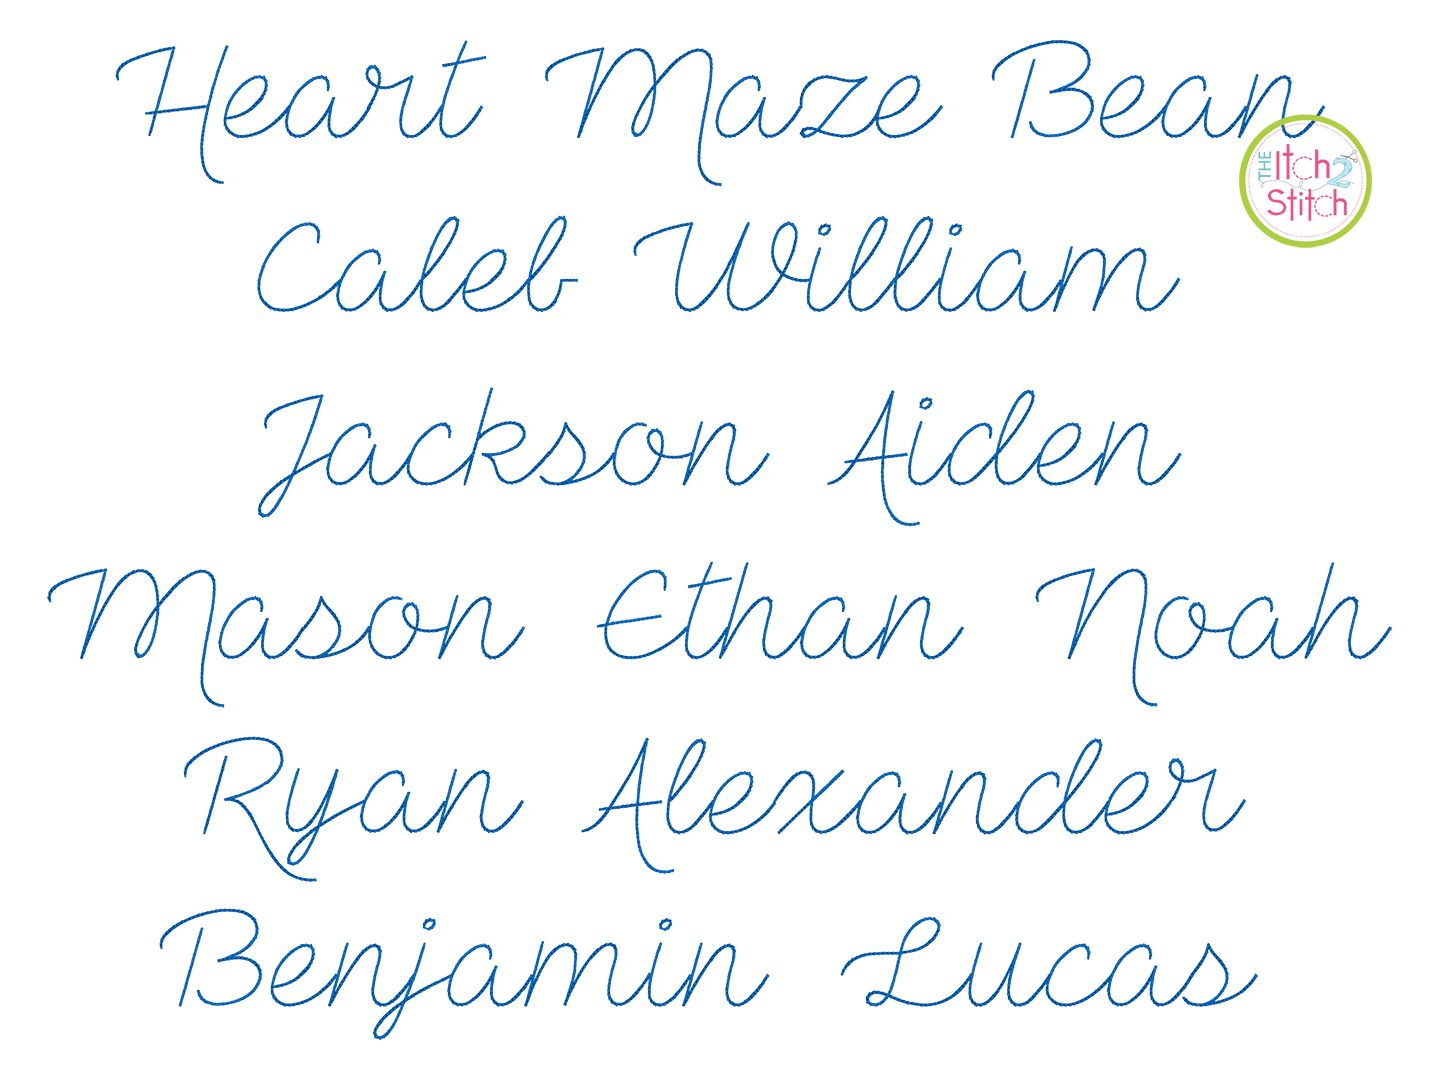 Heart Maze Bean
THE Itch 2 Stitch
Caleb William
Jackson Aiden
Mason Ethan Noah
Ryan Alexander
Benjamin Lucas